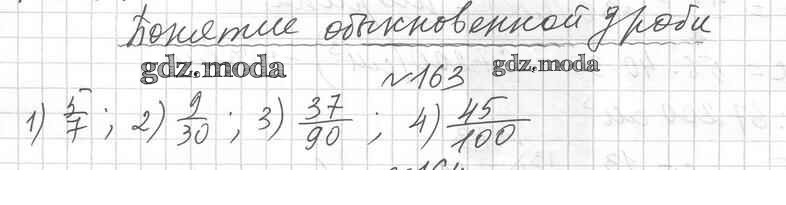 Понятие обыкновенной дроби
gdz.moda gdz.moda
№163
1) 5/7 ; 2) 9/30 ; 3) 37/90 ; 4) 45/100